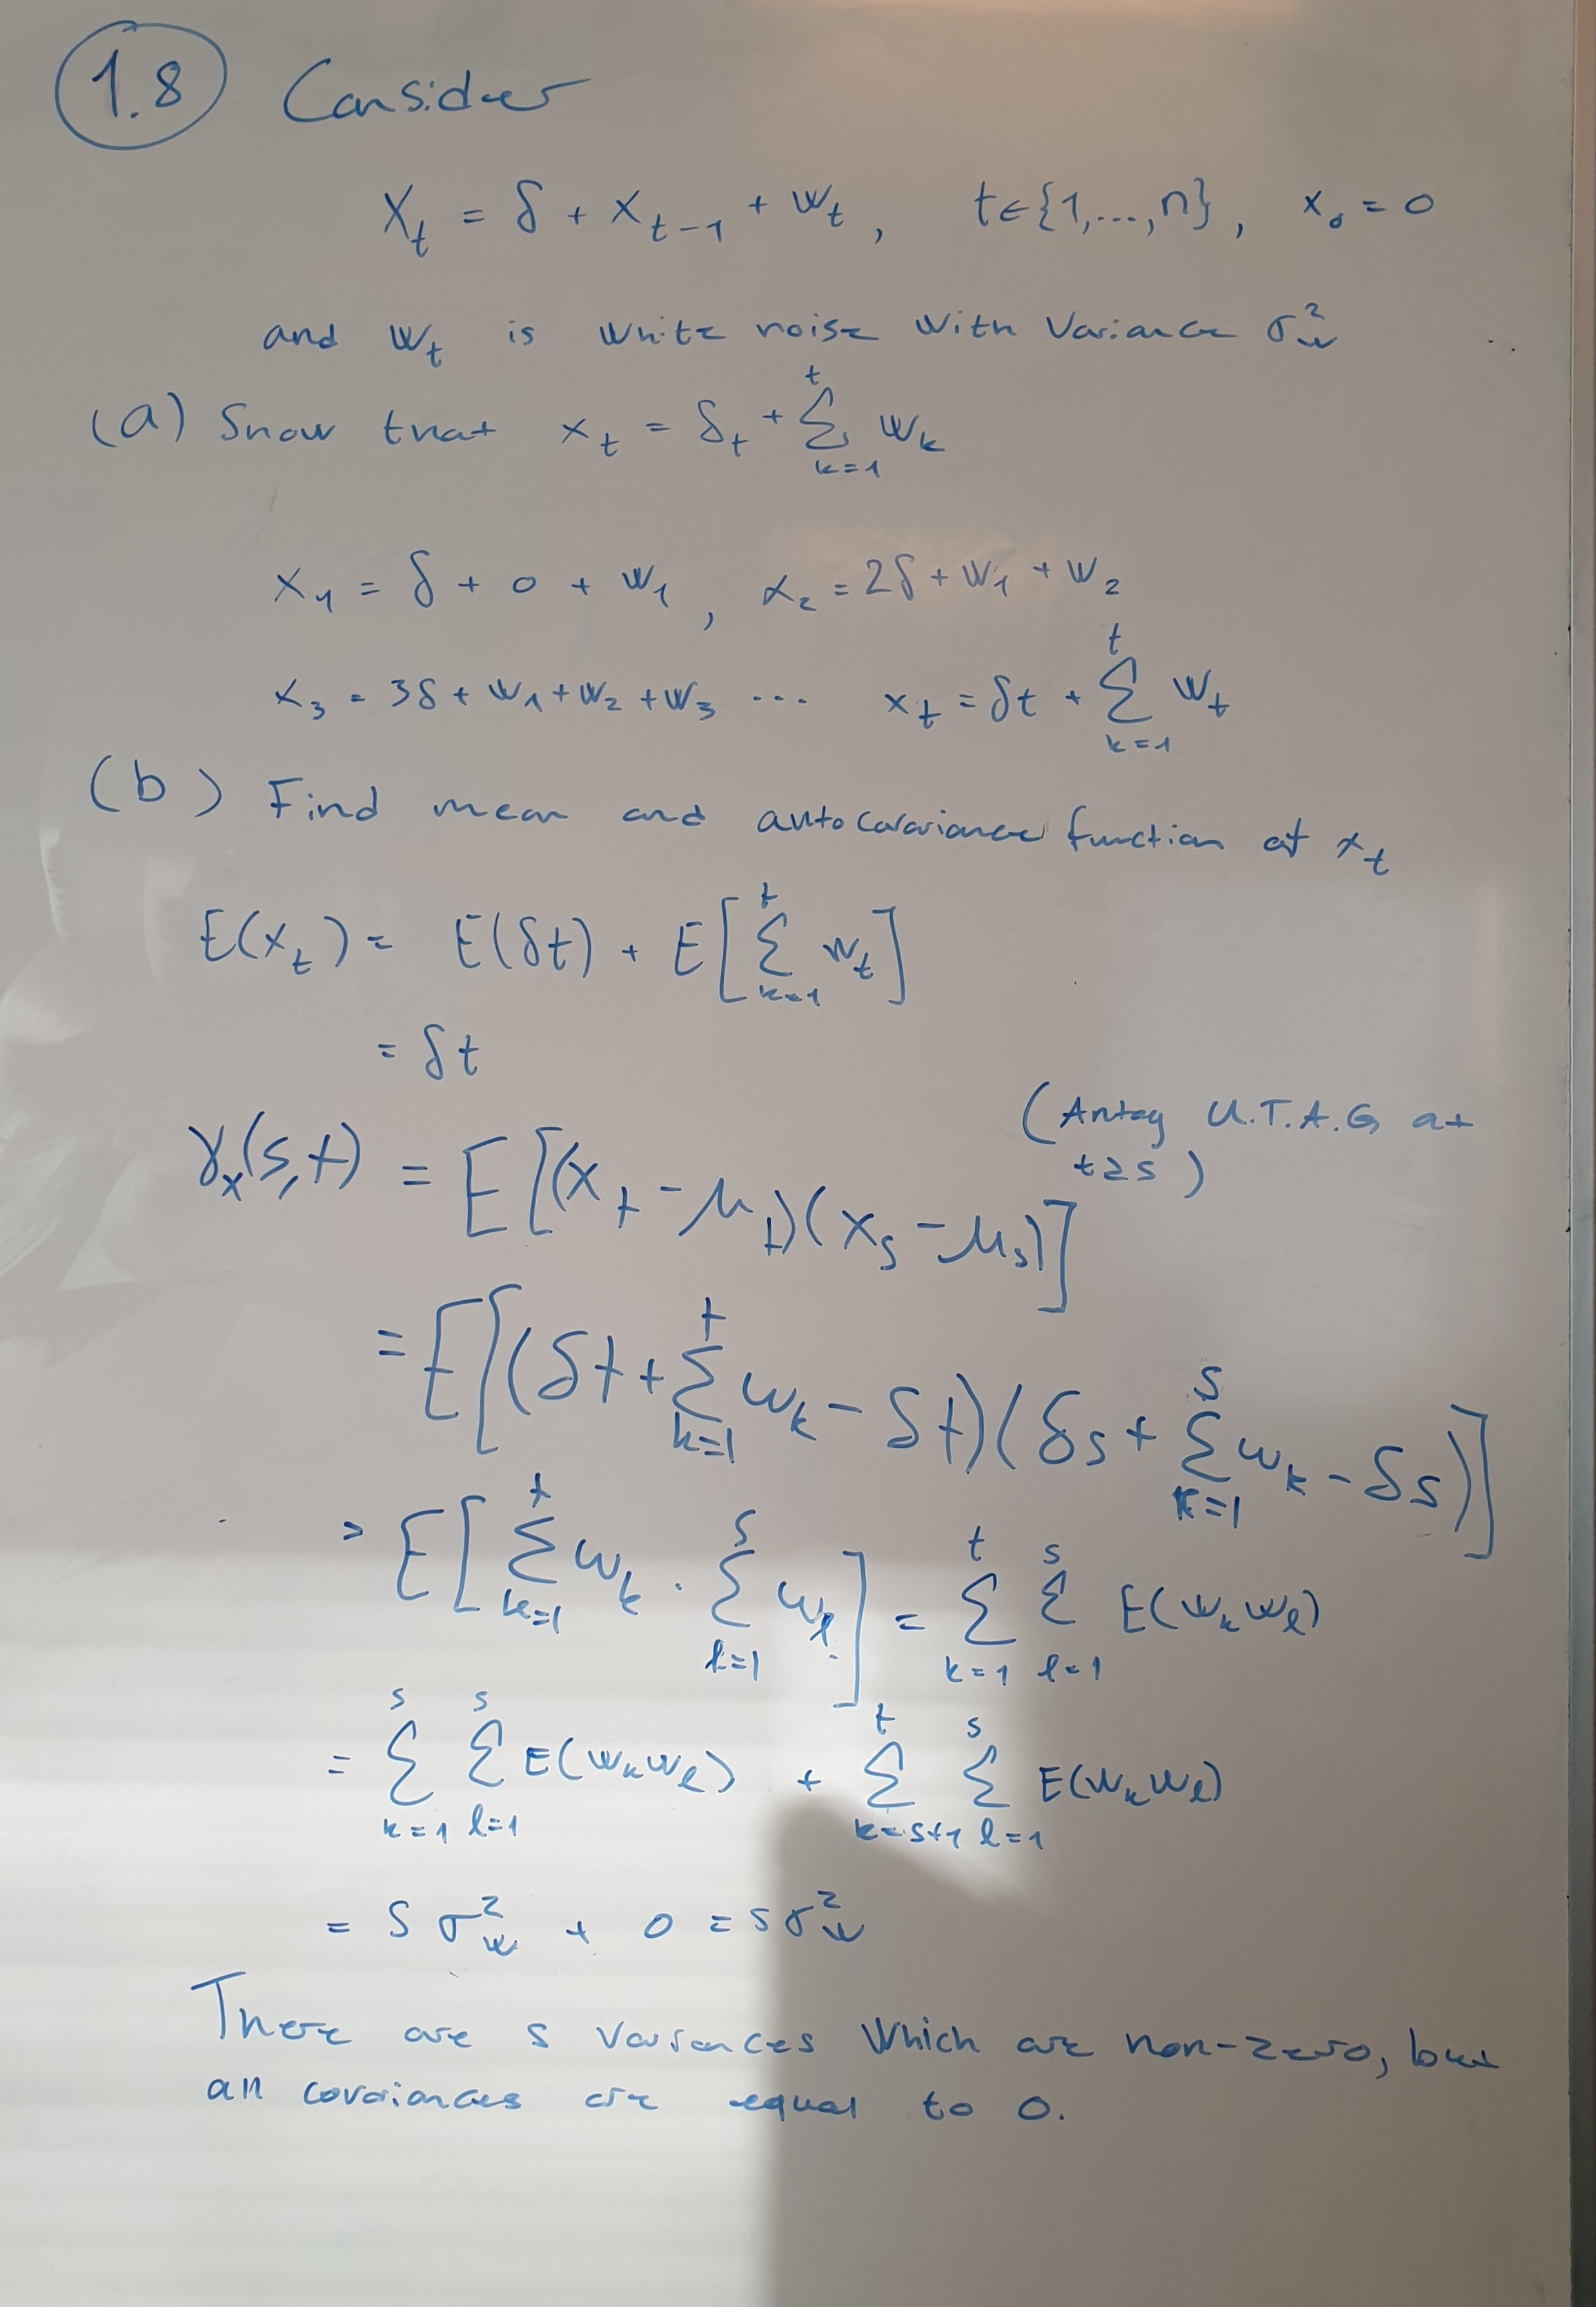 1.8 Consider
X_t = δ + x_{t-1} + w_t, t∈{1,...,n}, x_0 = 0
and w_t is white noise with variance σ_w^2
(a) Show that x_t = δ_t + Σ_{k=1}^{t} w_k
x_1 = δ + 0 + w_1, x_2 = 2δ + w_1 + w_2
x_3 = 3δ + w_1 + w_2 + w_3 ... x_t = δt + Σ_{k=1}^{t} w_t
(b) Find mean and autocovariance function of x_t
E(x_t) = E(δt) + E[Σ_{k=1}^{t} w_t]
= δt
(Antag U.T.A.G at
t≥s)
γ_x(s,t) = E[(x_t - μ_t)(x_s - μ_s)]
= E[(δt + Σ_{k=1}^{t} w_k - δt)(δs + Σ_{k=1}^{s} w_k - δs)]
= E[Σ_{k=1}^{t} w_k · Σ_{l=1}^{s} w_l] = Σ_{k=1}^{t} Σ_{l=1}^{s} E(w_k w_l)
= Σ_{k=1}^{s} Σ_{l=1}^{s} E(w_k w_l) + Σ_{k=s+1}^{t} Σ_{l=1}^{s} E(w_k w_l)
= s σ_w^2 + 0 = s σ_w^2
There are s variances which are non-zero, but
all covariances are equal to 0.